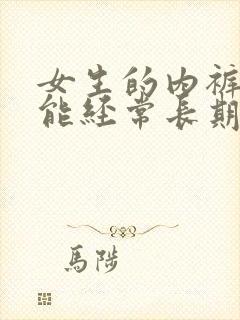 女生的内裤
能经常長期
馬陟